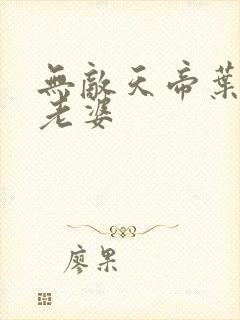 無敵天帝葉
老婆
廖果